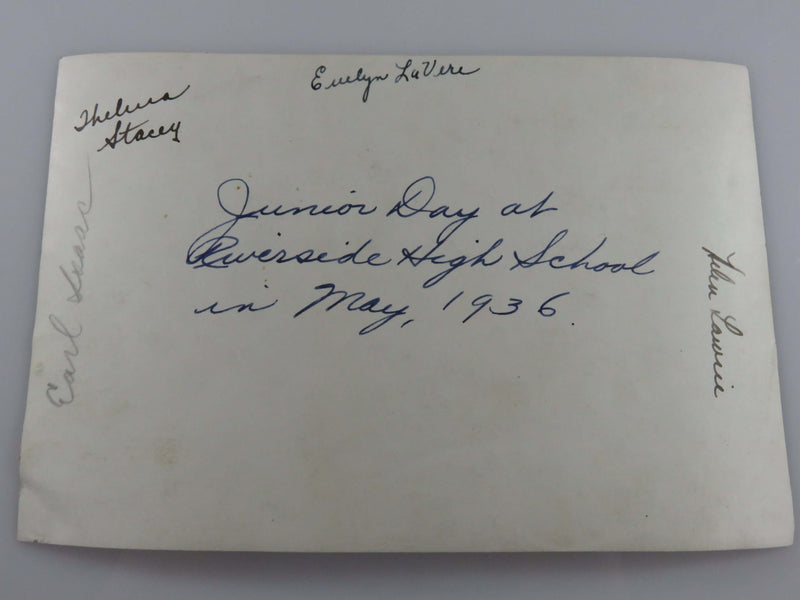 Evelyn LaVere
Thelma
Stacey
Junior Day at
Riverside High School
in May, 1936.
Earl Isaac
Helen Lawrie